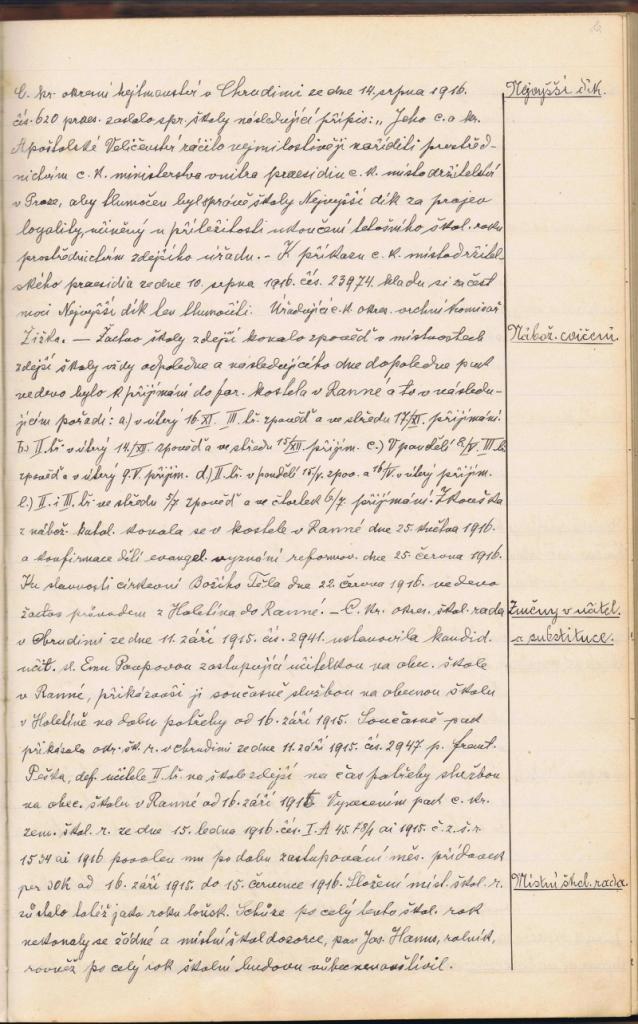 C. kr. okresní hejtmanství v Chrudimi ze dne 14. srpna 1916.
Nejvyšší dík.
čís. 620 praes. zaslalo spr. školy následující přípis: „Jeho c. a kr.
Apoštolské Veličenství ráčilo nejmilostivěji naříditi prostřed-
nictvím c. k. ministerstva vnitra praesidiu c. k. místodržitelství
v Praze, aby tlumočen byl správě školy Nejvyšší dík za projev
loyality, učiněný u příležitosti ukončení letošního škol. roku
prostřednictvím zdejšího úřadu. - K příkazu c. k. místodržitel-
ského praesidia ze dne 10. srpna 1916. čís. 23974. kladu si za čest
moci Nejvyšší dík ten tlumočiti. Úřadující c. k. okres. vrchní komisař
Žižka. — Žactvo školy zdejší konalo zpověď v místnostech
Nábož. cvičení.
zdejší školy vždy odpoledne a následujícího dne dopoledne pak
vedeno bylo k přijímání do far. kostela v Ranné a to v následu-
jícím pořadí: a.) v úterý 16./XI. III. tř. zpověď a ve středu 17/XI. přijímání.
b.) II. tř. v úterý 14/XII. zpověď a ve středu 15/XII přijím. c.) V pondělí 8/V. III. tř.
zpověď a v úterý 9. V. přijím. d.) II. tř. v pondělí 15/V. zpov. a 16/V. v úterý přijím.
e.) II. i III. tř. ve středu 5/7 zpověď a ve čtvrtek 6/7. přijímání. Zkouška
z nábož. katol. konala se v kostele v Ranné dne 25. května 1916.
a konfirmace dětí evangel. vyznání reformov. dne 25. června 1916.
Ku slavnosti církevní Božího Těla dne 22. června 1916. vedeno
žactvo průvodem z Holetína do Ranné. — C. kr. okres. škol. rada
Změny v učitel.
a substituce.
v Chrudimi ze dne 11. září 1915. čís. 2941. ustanovila kandid.
učit. sl. Emu Poupovou zastupující učitelkou na obec. škole
v Ranné, přikázavši ji současně službou na obecnou školu
v Holetíně na dobu potřeby od 16. září 1915. Současně pak
přikázala okr. šk. r. v Chrudimi ze dne 11. září 1915. čís. 2947 p. Frant.
Peška, def. učitele II. tř. na škole zdejší na čas potřeby službou
na obec. školu v Ranné od 16. září 1915. Vynesením pak c. kr.
zem. škol. r. ze dne 15. ledna 1916. čís. I. A 45.78/1 ai 1915. č. z. š. r.
1534 ai 1916 povolen mu po dobu zastupování měs. přídavek
per 30K od 16. září 1915. do 15. července 1916. Složení míst. škol. r.
Místní škol. rada.
zůstalo totéž jako roku loňsk. Schůze po celý tento škol. rok
nekonaly se žádné a místní škol dozorce, pan Jos. Hanus, rolník,
rovněž po celý rok školní budovu vůbec nenavštívil.